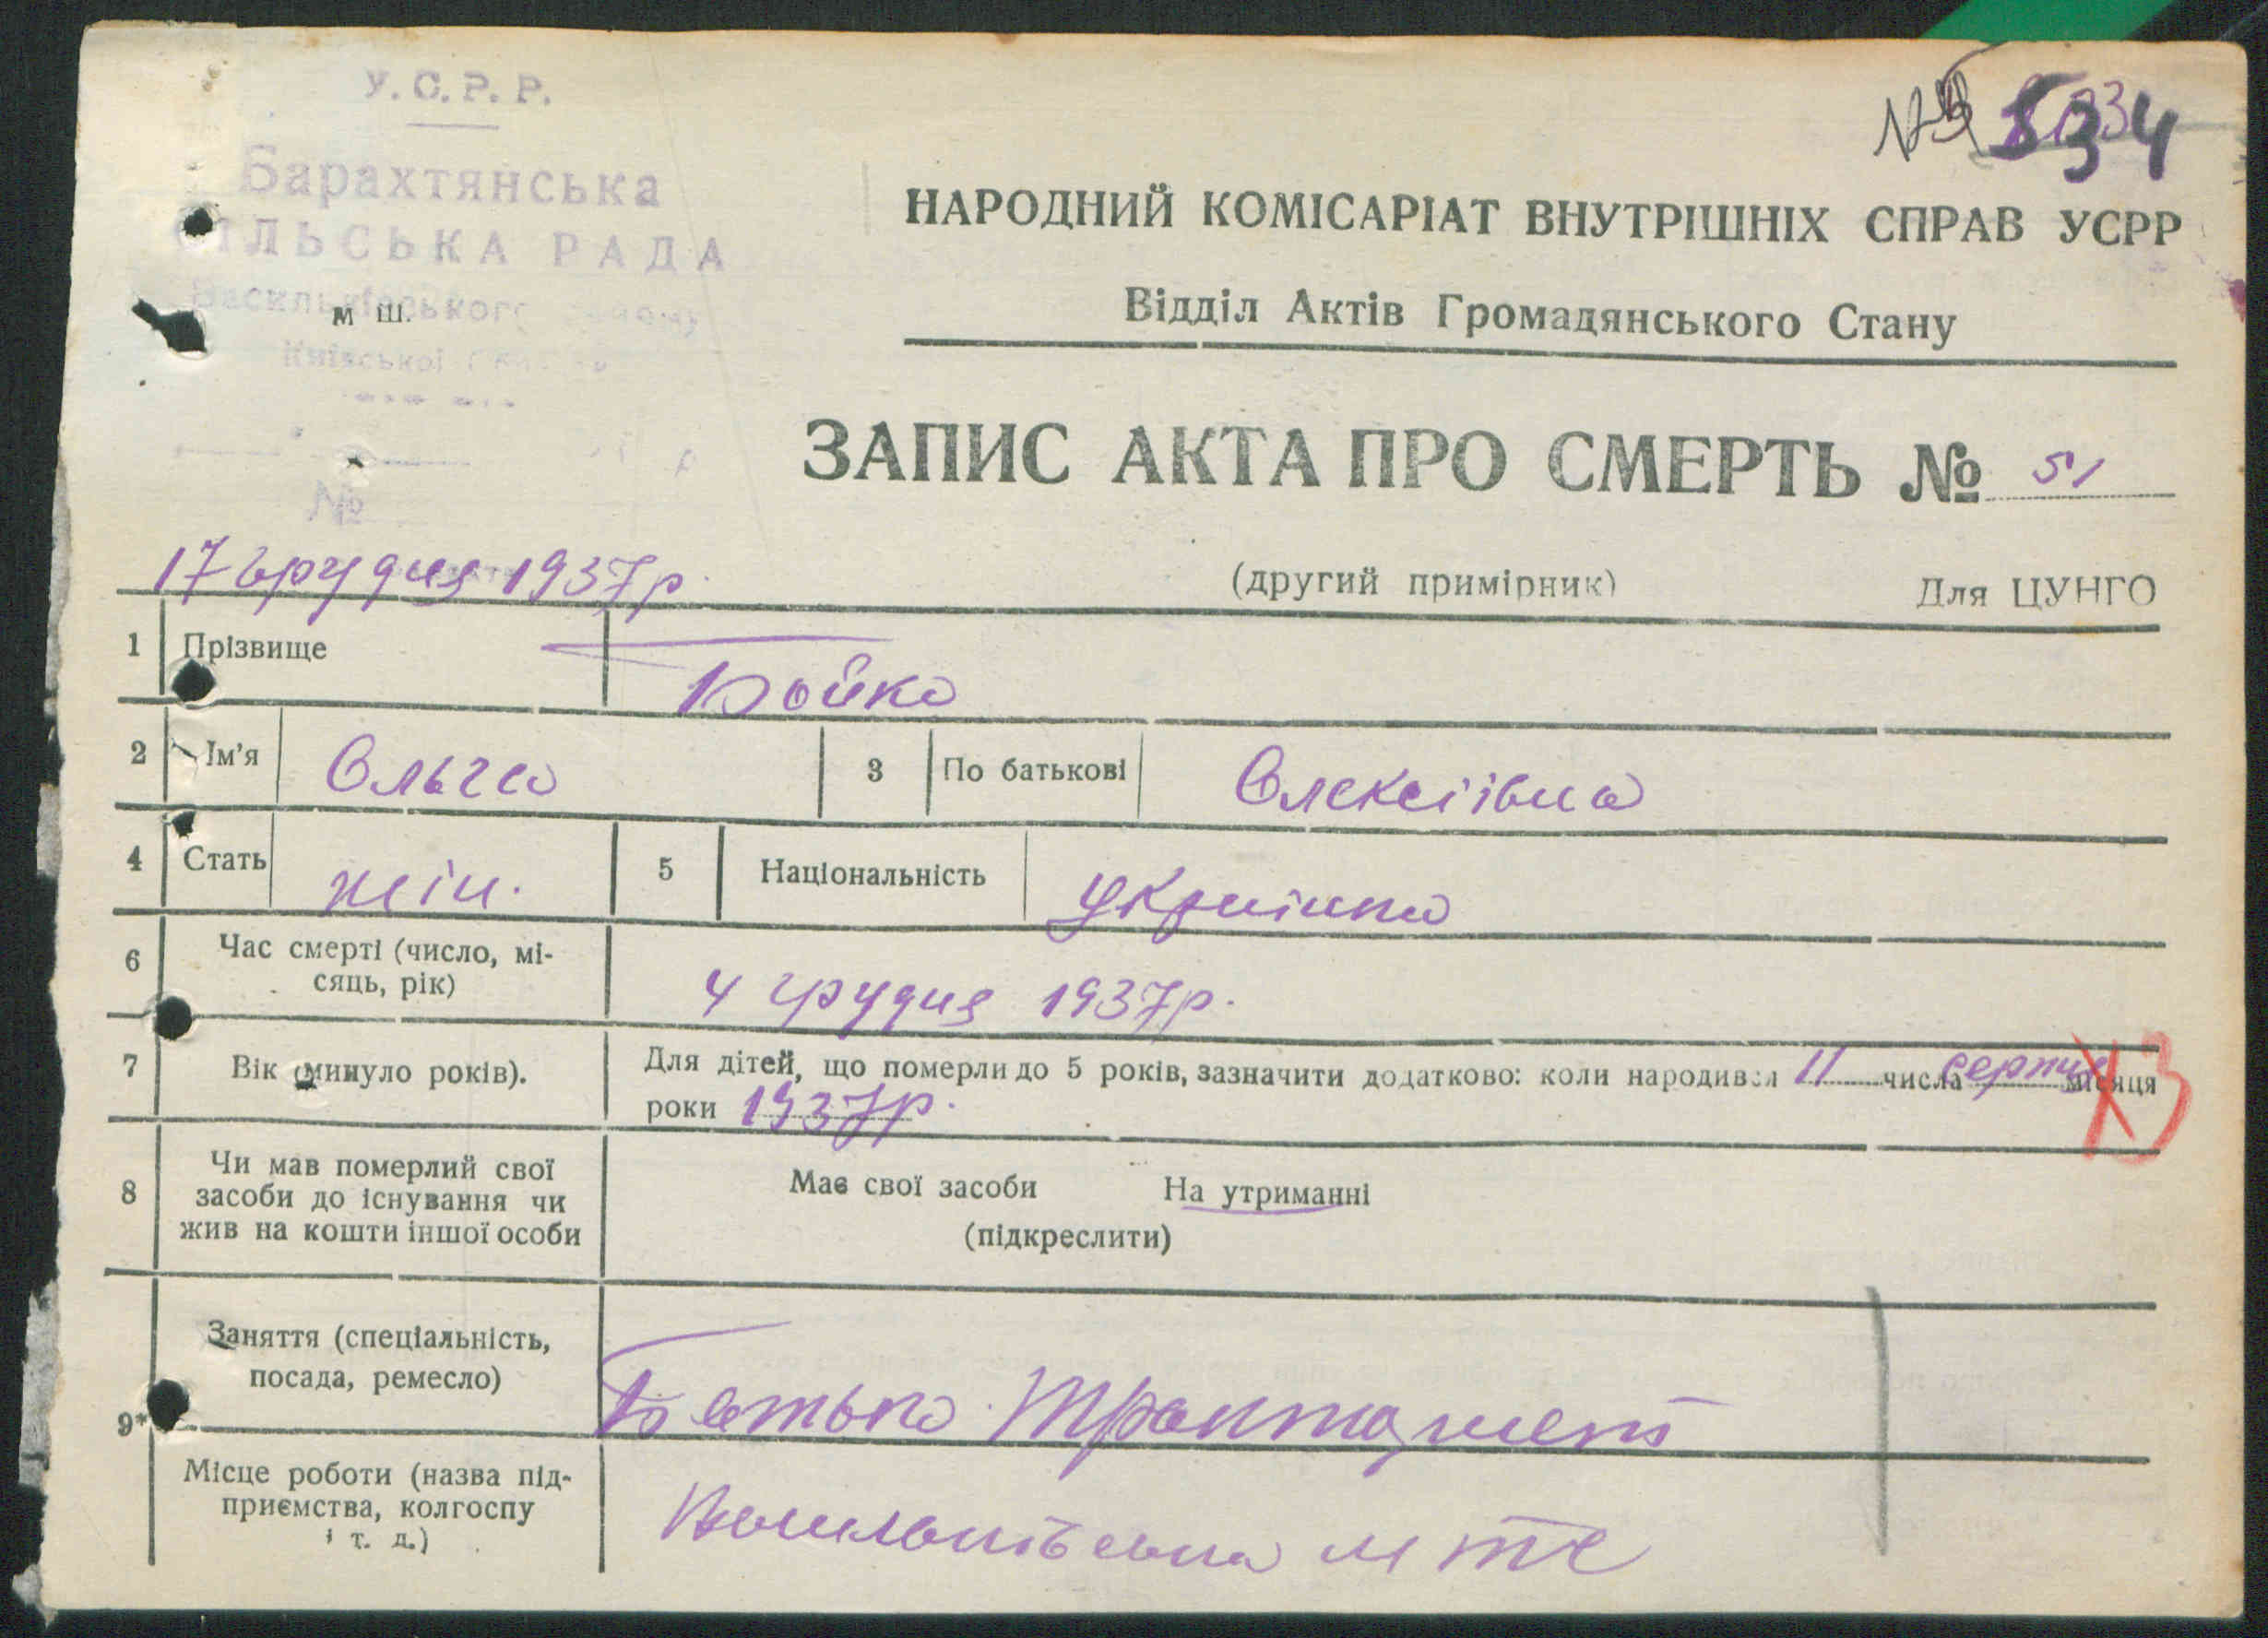 У.С.Р.Р.
Барахтянська
СІЛЬСЬКА РАДА
Васильківського району
м ш.
Київської
№
№ 534
НАРОДНИЙ КОМІСАРІАТ ВНУТРІШНІХ СПРАВ УСРР
Відділ Актів Громадянського Стану
ЗАПИС АКТА ПРО СМЕРТЬ № 51
17 грудня 1937р.
(другий примірник) Для ЦУНГО
1 Прізвище Бойко
2 Ім'я Ольга 3 По батькові Олексіївна
4 Стать жін. 5 Національність українка
6 Час смерті (число, мі-
сяць, рік) 4 грудня 1937р.
7 Вік (минуло років). Для дітей, що померли до 5 років, зазначити додатково: коли народився 11 числа серпня місяця
роки 1937р.
8 Чи мав померлий свої
засоби до існування чи
жив на кошти іншої особи
Має свої засоби На утриманні
(підкреслити)
9* Заняття (спеціальність,
посада, ремесло) Батько тракторист
Місце роботи (назва під-
приємства, колгоспу
і т. д.) Васильківська МТС